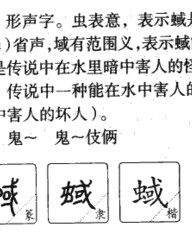 形声字。虫表意，表示蜮是
）省声，域有范围义，表示蜮
是传说中在水里暗中害人的怪
传说中一种能在水中害人的
中害人的坏人）。
鬼～ 鬼～伎俩
蜮 篆 蜮 隶 蜮 楷